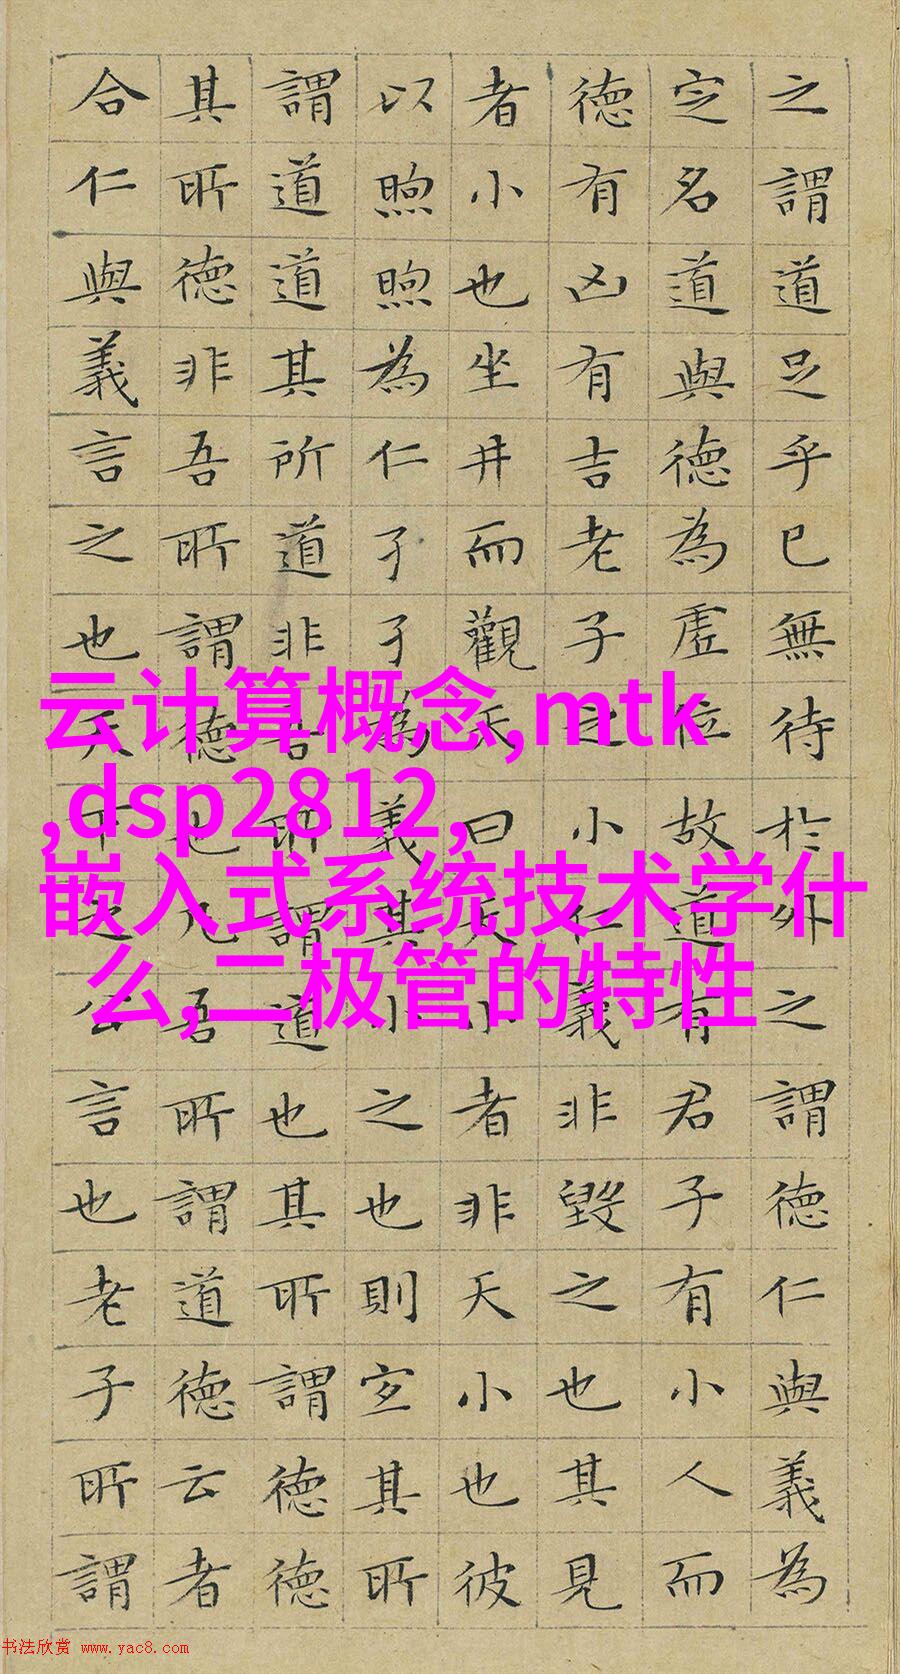 之謂道足乎已無待於外之謂德仁與義為
定名道與德為虛位故道有君子有小人而
德有凶有吉老子之小仁義非毀之也其見
者小也坐井而觀天曰天小者非天小也彼
以煦煦為仁孑孑為義其小之也則宜其所
謂道道其所道非吾所謂道也其所謂德德
其所德非吾所謂德也凡吾所謂道德云者
合仁與義言之也天下之公言也老子所謂
云计算概念,mtk
,dsp2812,
嵌入式系统技术学什
么,二极管的特性
书法欣赏 www.yac8.com